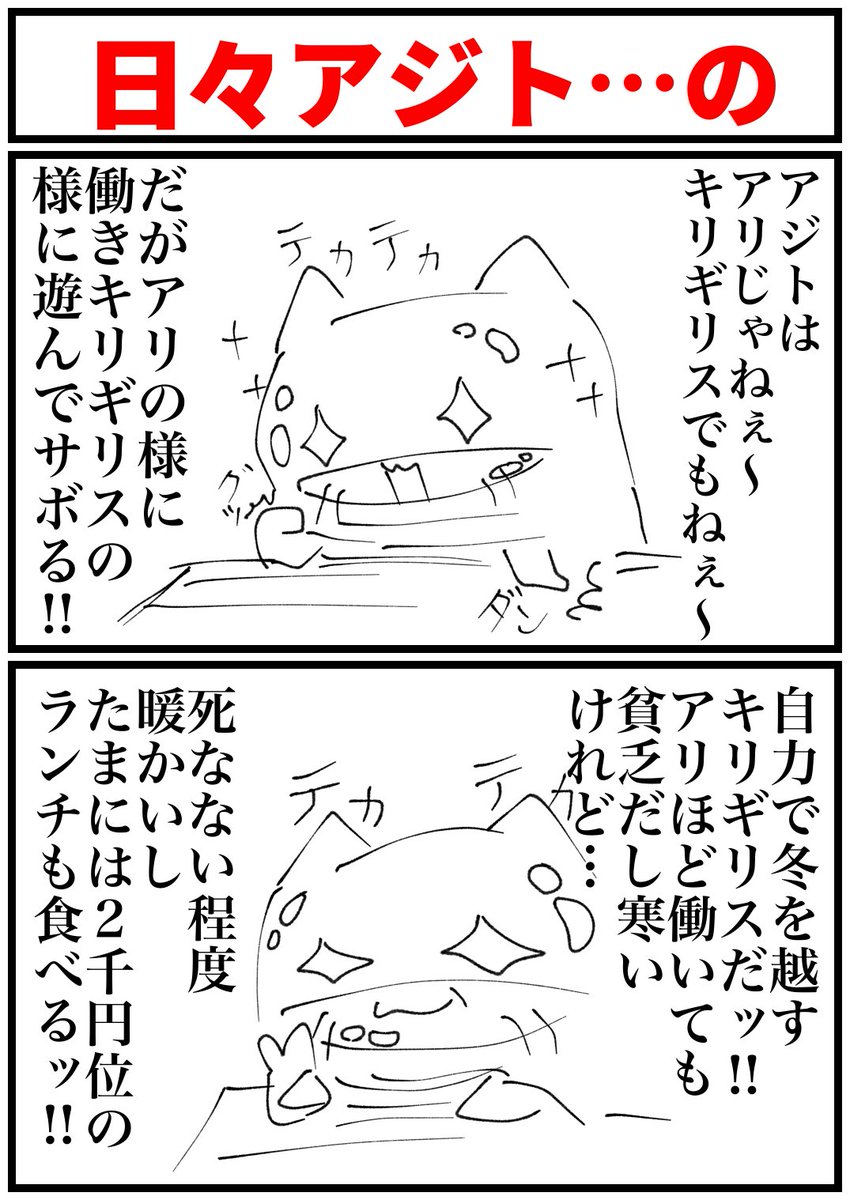 日々アジト…の
アジトは
アリじゃねぇ～
キリギリスでもねぇ～
テカテカ
だがアリの様に
働きキリギリスの
様に遊んでサボる!!
グッ
ダン
自力で冬を越す
キリギリスだッ!!
アリほど働いても
貧乏だし寒い
けれど…
テカ
テカ
死なない程度
暖かいし
たまには２千円位の
ランチも食べるッ!!